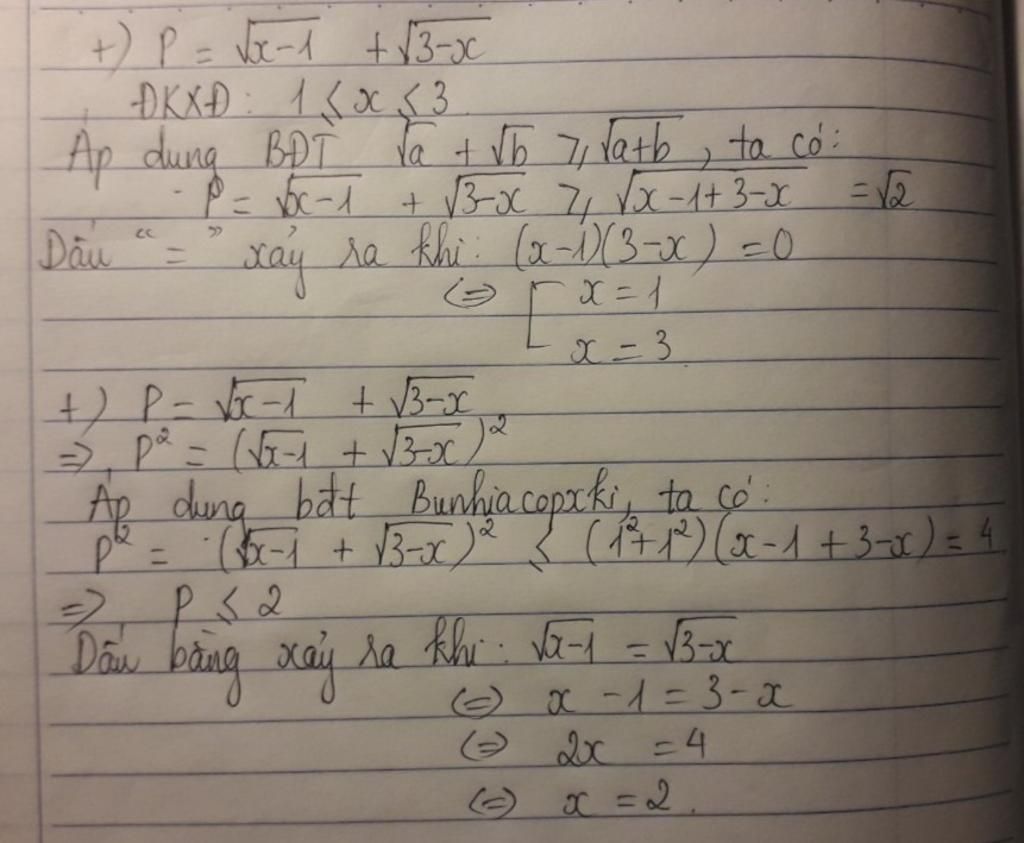 +) P = √x-1 + √3-x
ĐKXĐ: 1 ≤ x ≤ 3
Áp dụng BĐT √a + √b ≥ √a+b, ta có:
P = √x-1 + √3-x ≥ √x-1+3-x = √2
Dấu " = " xảy ra khi: (x-1)(3-x) = 0
⇔ [ x = 1
x = 3
+) P = √x-1 + √3-x
⇒ P² = (√x-1 + √3-x)²
Áp dụng bđt Bunhiacopxki, ta có:
P² = (√x-1 + √3-x)² ≤ (1²+1²)(x-1+3-x) = 4
⇒ P ≤ 2
Dấu bằng xảy ra khi: √x-1 = √3-x
⇔ x - 1 = 3 - x
⇔ 2x = 4
⇔ x = 2.